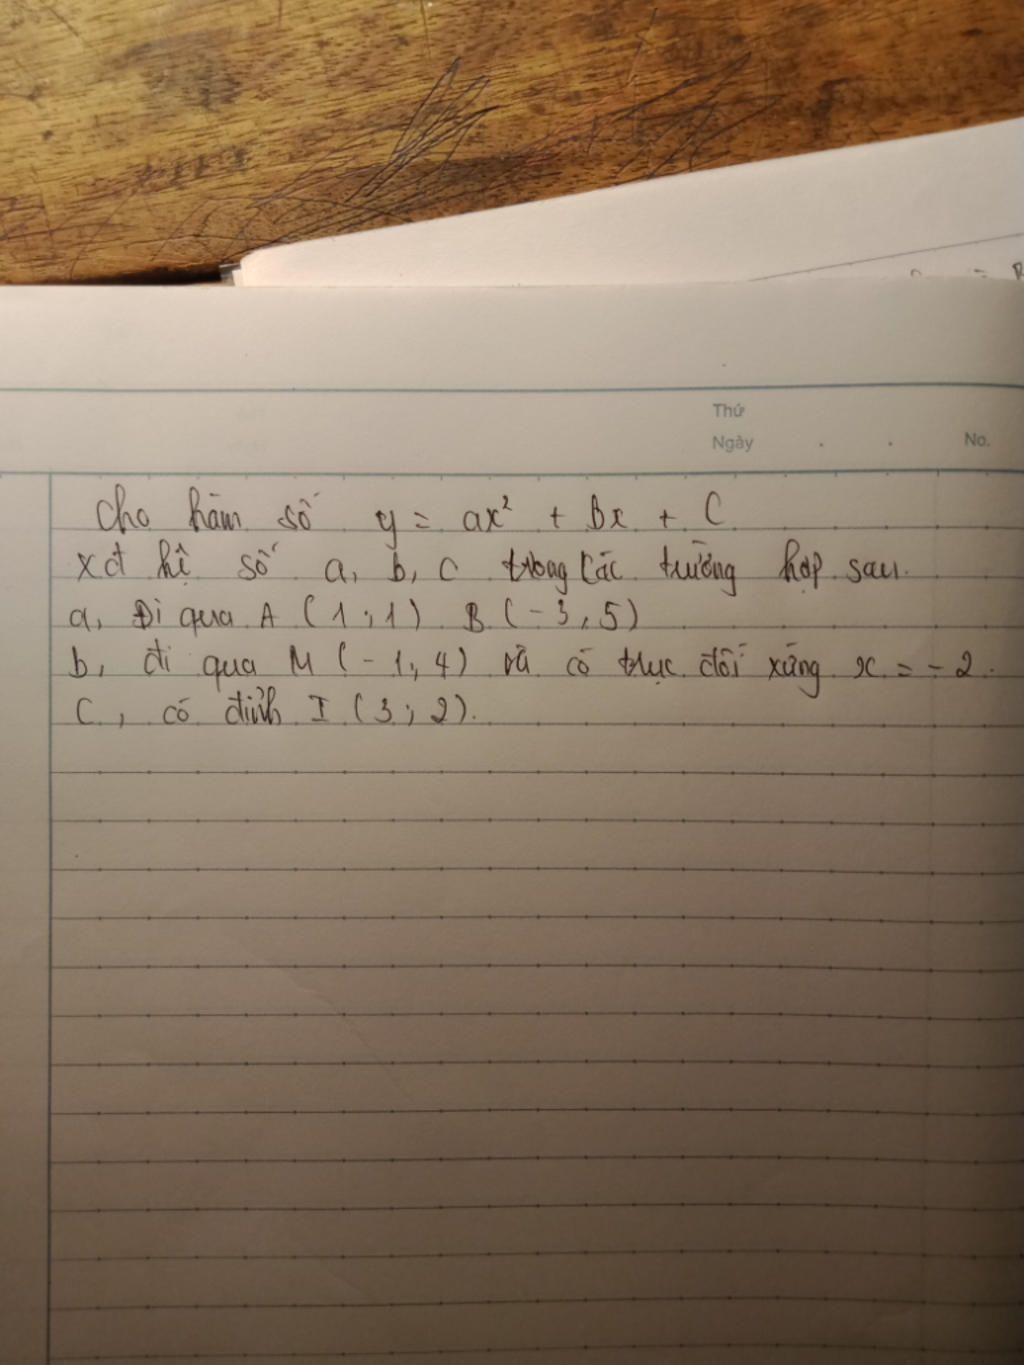 Thứ
Ngày . . No.
Cho hàm số y = ax² + bx + C
xđ hệ số a, b, c trong các trường hợp sau.
a, Đi qua A (1; 1) B (-3, 5)
b, đi qua M (-1, 4) và có trục đối xứng x = -2.
C, có đỉnh I (3; 2).